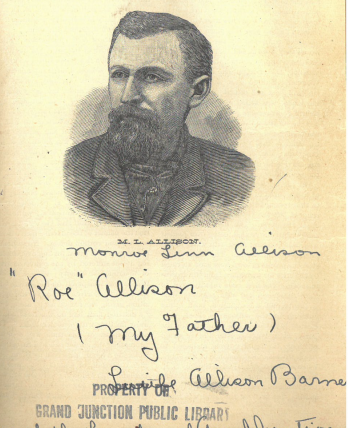 M. L. ALLISON.
Monroe Linn Allison
"Roe" Allison
( My Father )
Allison Barne
PROPERTY OF
GRAND JUNCTION PUBLIC LIBRARY